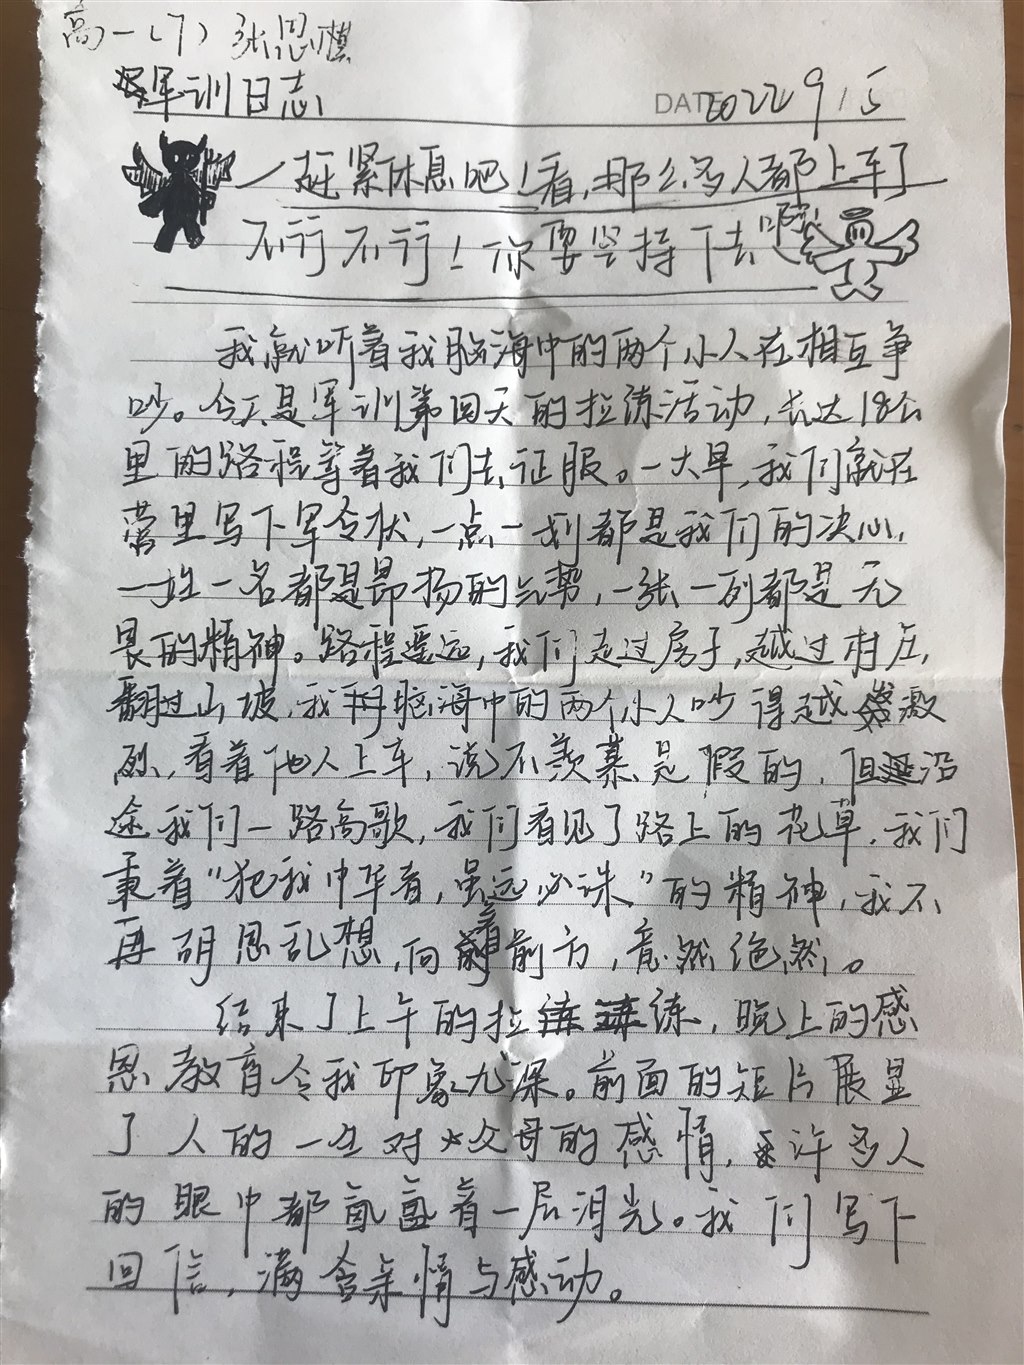 高一(7) 张思棋
军训日志
DATE 2022 9 15
赶紧休息吧!看,那么多人都上车了
不行不行!你要坚持下去啊
我就听着我脑海中的两个小人在相互争
吵。今天是军训第四天的拉练活动,长达18公
里的路程等着我们去征服。一大早,我们就在
营里写下军令状,一点一划都是我们的决心,
一姓一名都是昂扬的气势,一张一列都是无
畏的精神。路程遥远,我们走过房子,越过村庄,
翻过山坡,我脑海中的两个小人吵得越激
烈,看着他人上车,说不羡慕是假的,但沿
途我们一路高歌,我们看见了路上的花草,我们
秉着“犯我中华者,虽远必诛”的精神,我不
再胡思乱想,向着前方,意然绝然。
结束了上午的拉练,晚上的感
恩教育令我印象尤深。前面的短片展显
了人的一生对父母的感情,许多人
的眼中都氤氲着一层泪光。我们写下
回信,满含亲情与感动。